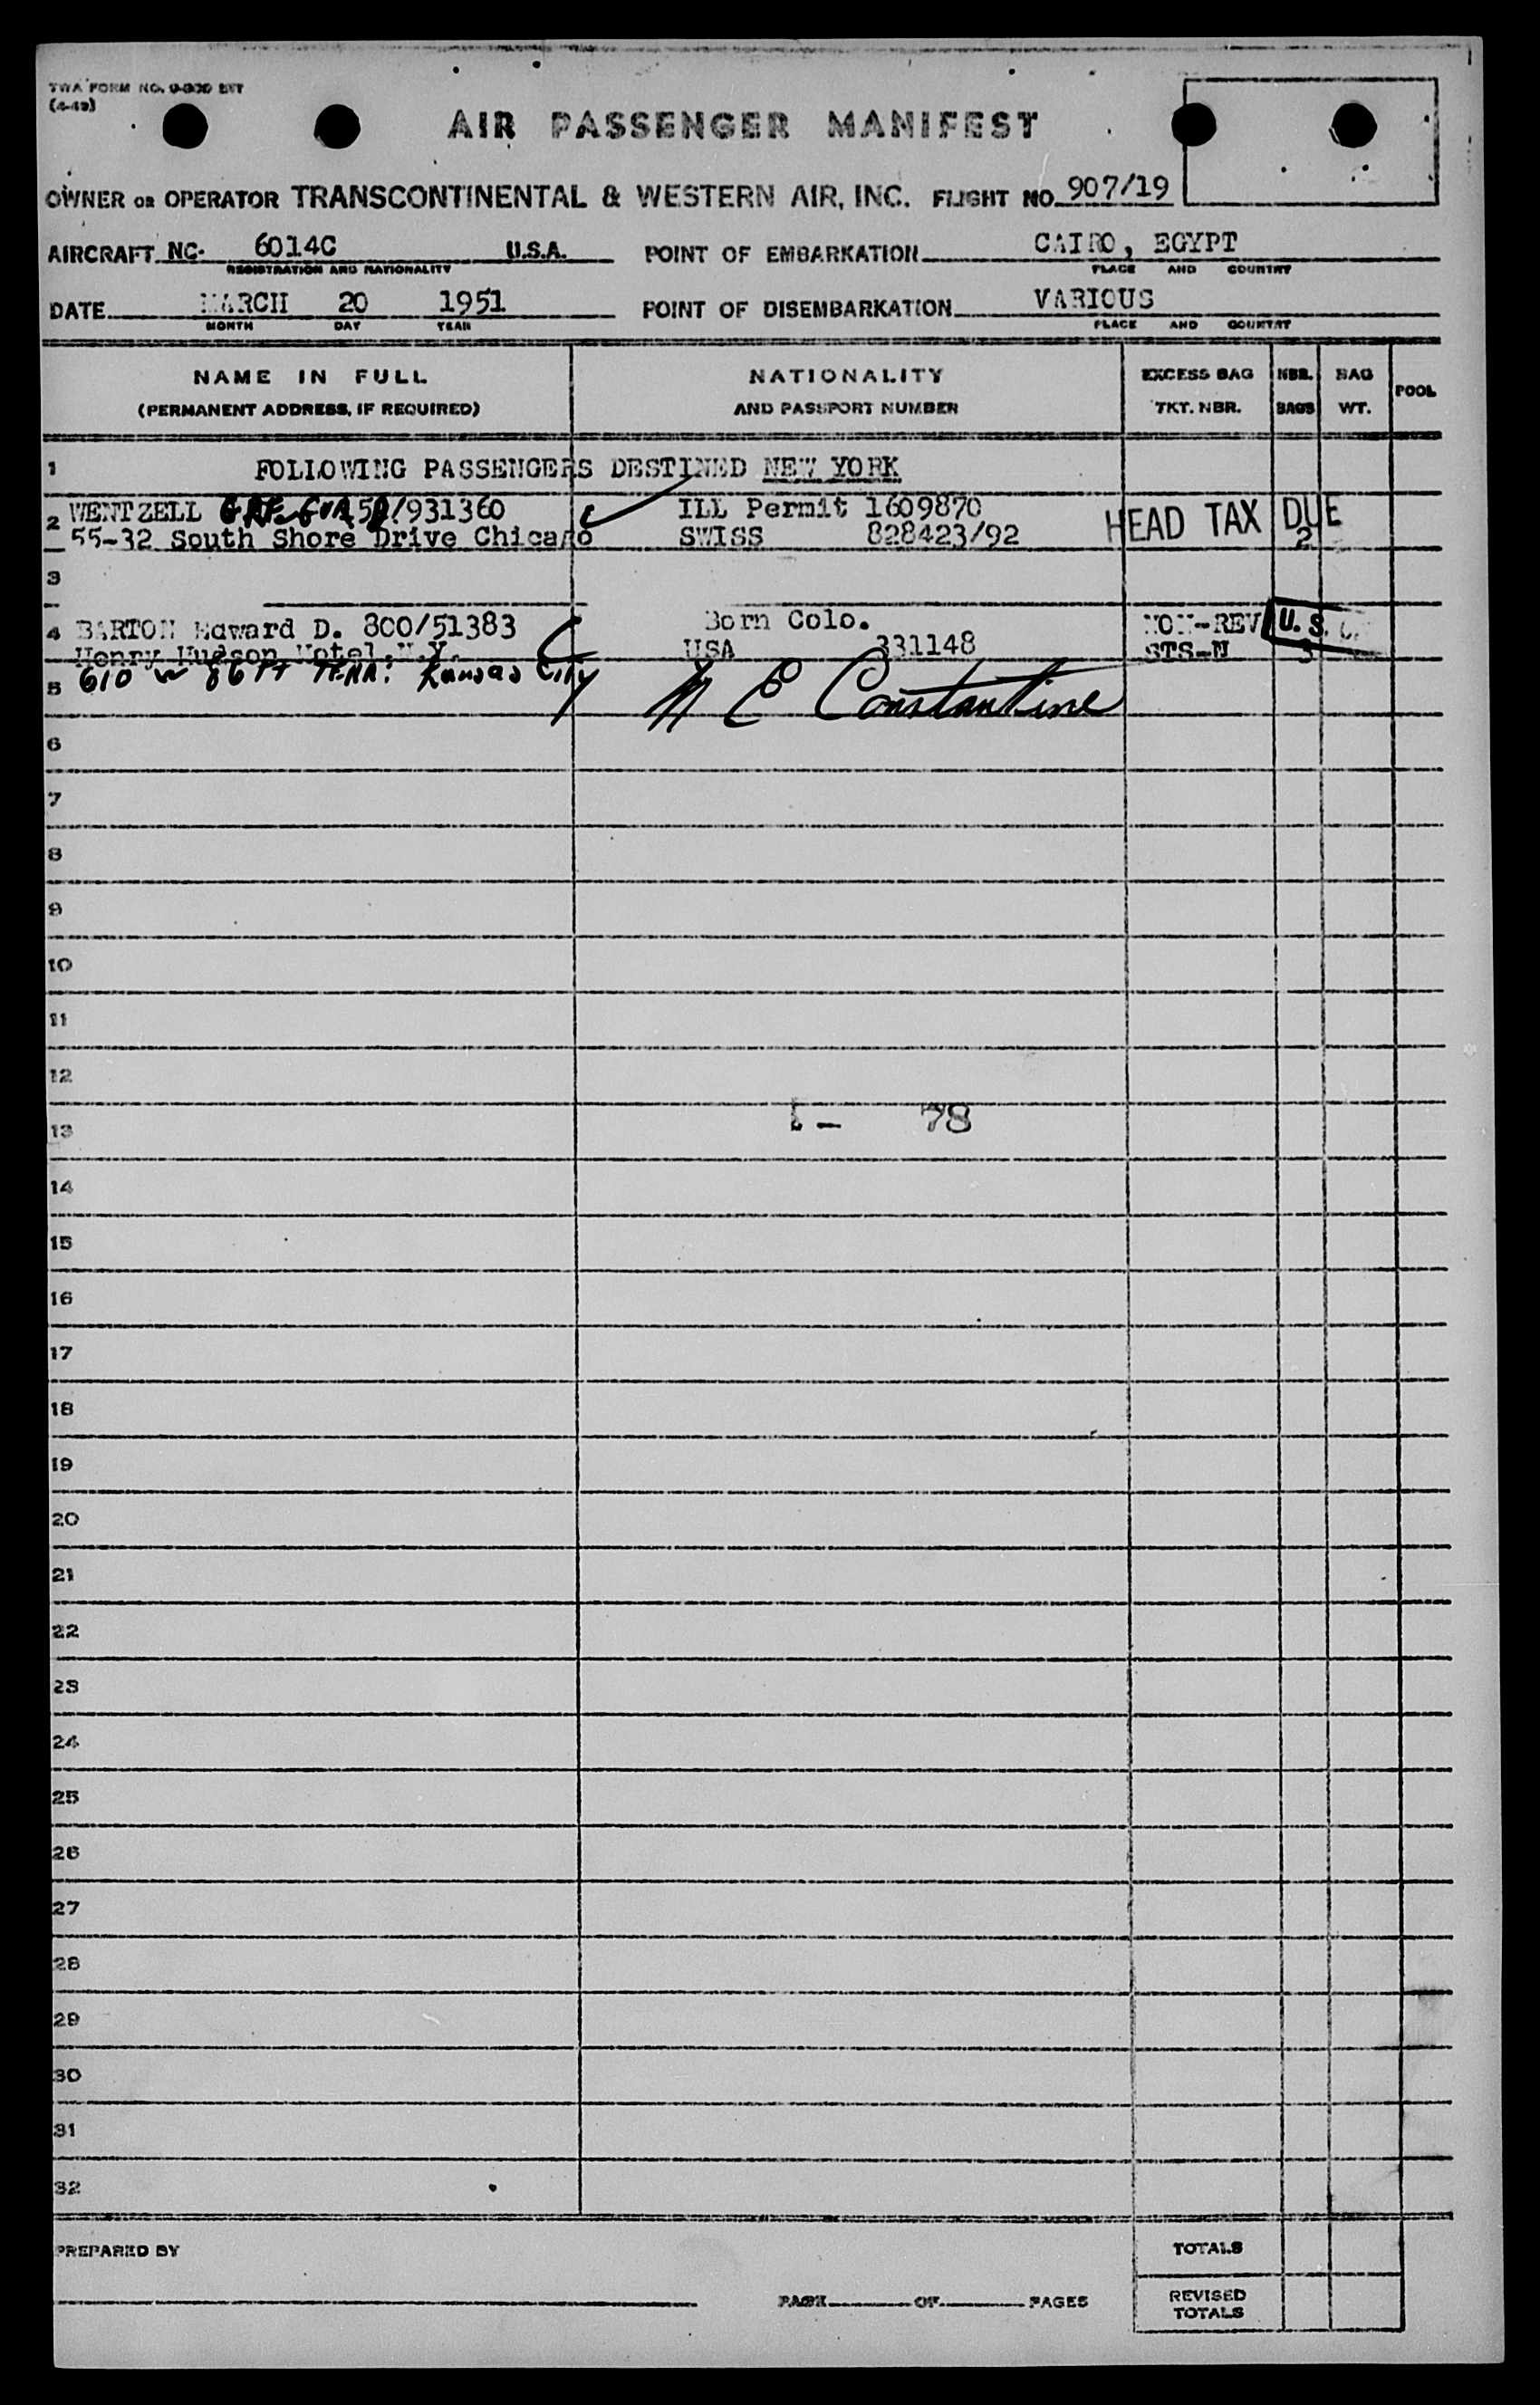 (4-49)
AIR PASSENGER MANIFEST
OWNER OR OPERATOR TRANSCONTINENTAL & WESTERN AIR, INC. FLIGHT NO. 907/19
AIRCRAFT NC- 6014C U.S.A. POINT OF EMBARKATION CAIRO, EGYPT
REGISTRATION AND NATIONALITY PLACE AND COUNTRY
DATE MARCH 20 1951 POINT OF DISEMBARKATION VARIOUS
MONTH DAY YEAR PLACE AND COUNTRY
NAME IN FULL NATIONALITY EXCESS BAG NBR. BAG POOL
(PERMANENT ADDRESS, IF REQUIRED) AND PASSPORT NUMBER TKT. NBR. BAGS WT.
1 FOLLOWING PASSENGERS DESTINED NEW YORK
2 WENTZELL /931360 ILL Permit 1609870 HEAD TAX DUE
55-32 South Shore Drive Chicago SWISS 828423/92 2
3
4 BARTON Edward D. 800/51383 Born Colo. NON-REV U.S.
Henry Hudson Hotel, N.Y. USA 331148 STS-N 3
5 610 W 86 Terr. Kansas City N E Constantine
6
7
8
9
10
11
12
13 - 78
14
15
16
17
18
19
20
21
22
23
24
25
26
27
28
29
30
31
32
PREPARED BY TOTALS
PAGE OF PAGES REVISED
TOTALS